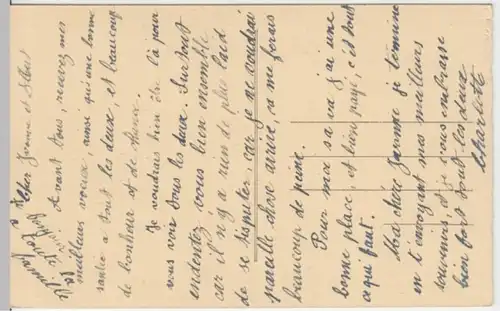 Cher Jeanne et Albert
Avant tous, recevez mes
meilleurs voeux, ainsi qui une bonne
santée a tout les deux, et beaucoup
de bonheur et de chance.
Je voudrais bien être là pour
vous voir tous les deux. Surtout
endentez vous bien ensemble
car il n'y a rien de plus laid
de se disputer, car je ne voudrai
pareille chose arrive, ca me ferais
beaucoup de peine.
Pour moi sa va j'ai une
bonne place, et bien payé, c'est tout
a qui faut.
Ma chère Jeanne je termine
en t'envoyant mes meilleurs
souvenirs et je vous embrasse
bien fort tout les deux
Charlotte